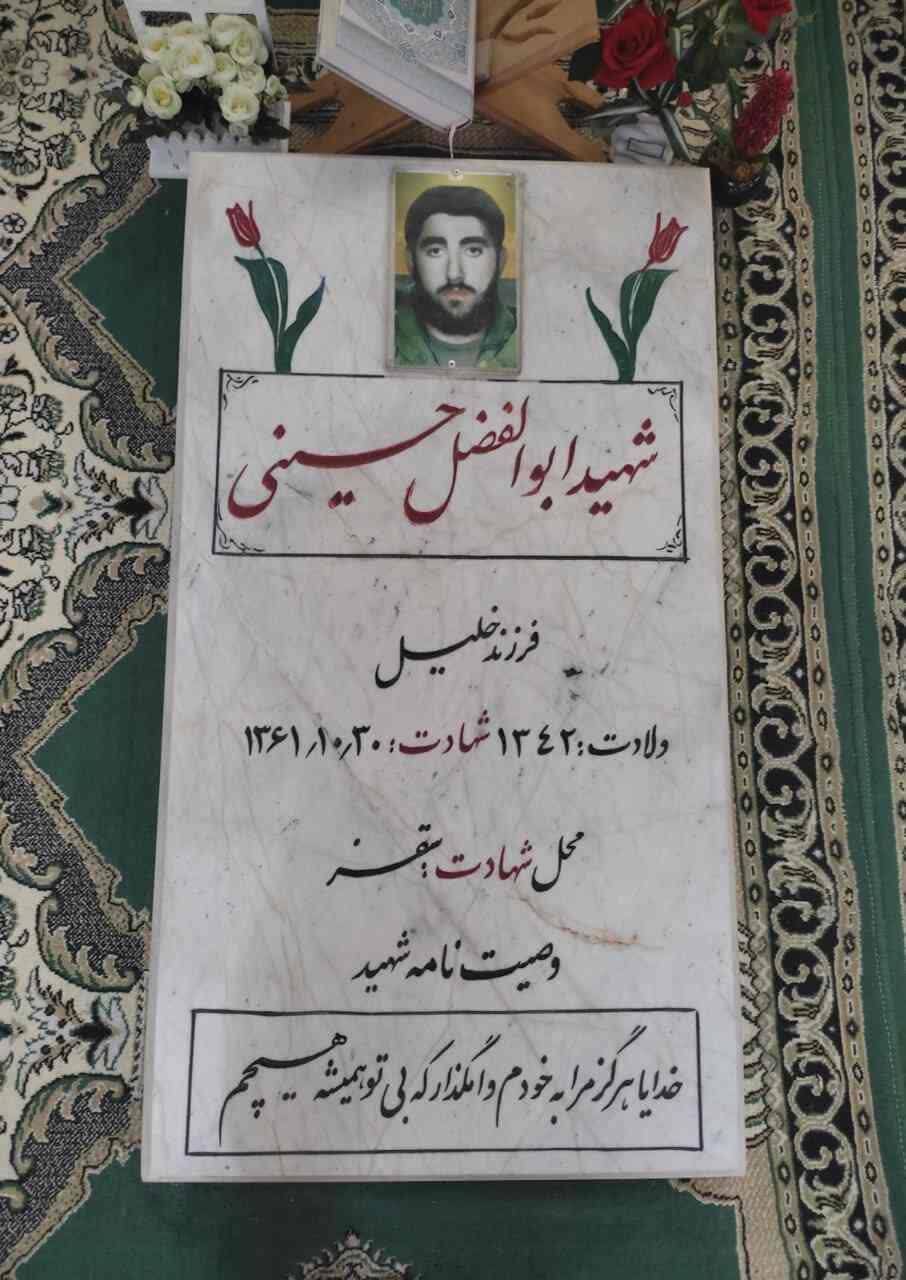 شهید ابوالفضل حسینی
فرزند خلیل
ولادت: ۱۳٤۲ شهادت: ۱۳۶۱٫۱۰٫۳۰
محل شهادت: سقز
وصیت نامه شهید
خدایا هرگز مرا به خودم وامگذار که بی تو همیشه هیچم